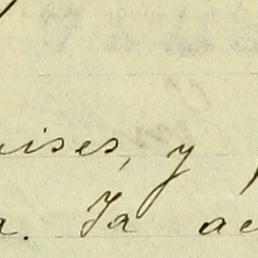 ises, y
a. Ya ac